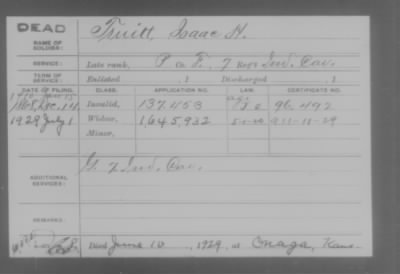 DEAD
NAME OF SOLDIER:
Truitt, Isaac H.
SERVICE:
Late rank, P Co. F, 7 Reg't Ind. Cav.
TERM OF SERVICE:
Enlisted , 1 Discharged , 1
DATE OF FILING. CLASS. APPLICATION NO. LAW. CERTIFICATE NO.
Dec. 14 Invalid, 137.453 96.492
1929 July 1 Widow, 1,645,932 5-1-20 9-11-29
Minor,
ADDITIONAL SERVICES:
G. 7 Ind. Cav.
REMARKS:
Died June 10, 1929, at Onaga, Kans.